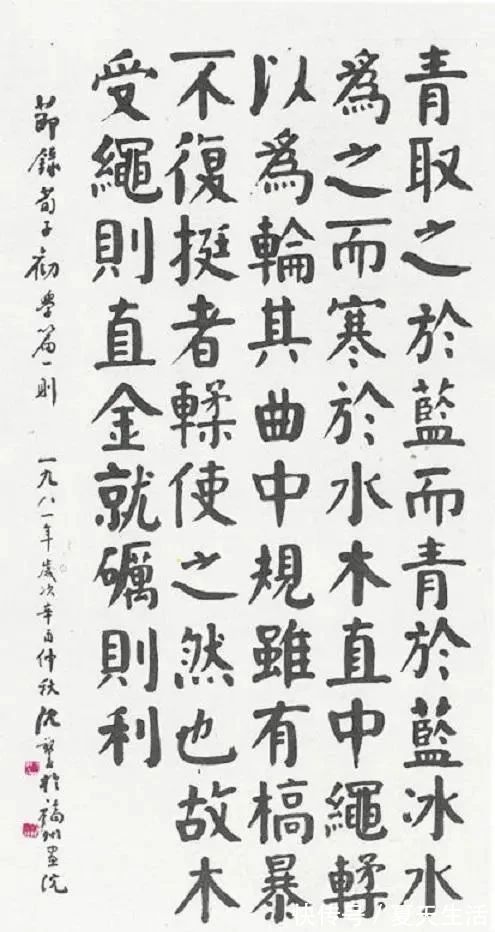 青取之於藍而青於藍冰水
為之而寒於水木直中繩輮
以為輪其曲中規雖有槁暴
不復挺者輮使之然也故木
受繩則直金就礪則利
節錄荀子初學篇一則 一九八一年歲次辛酉仲秋 沈 於福州畫院
快传号 / 夏天生活